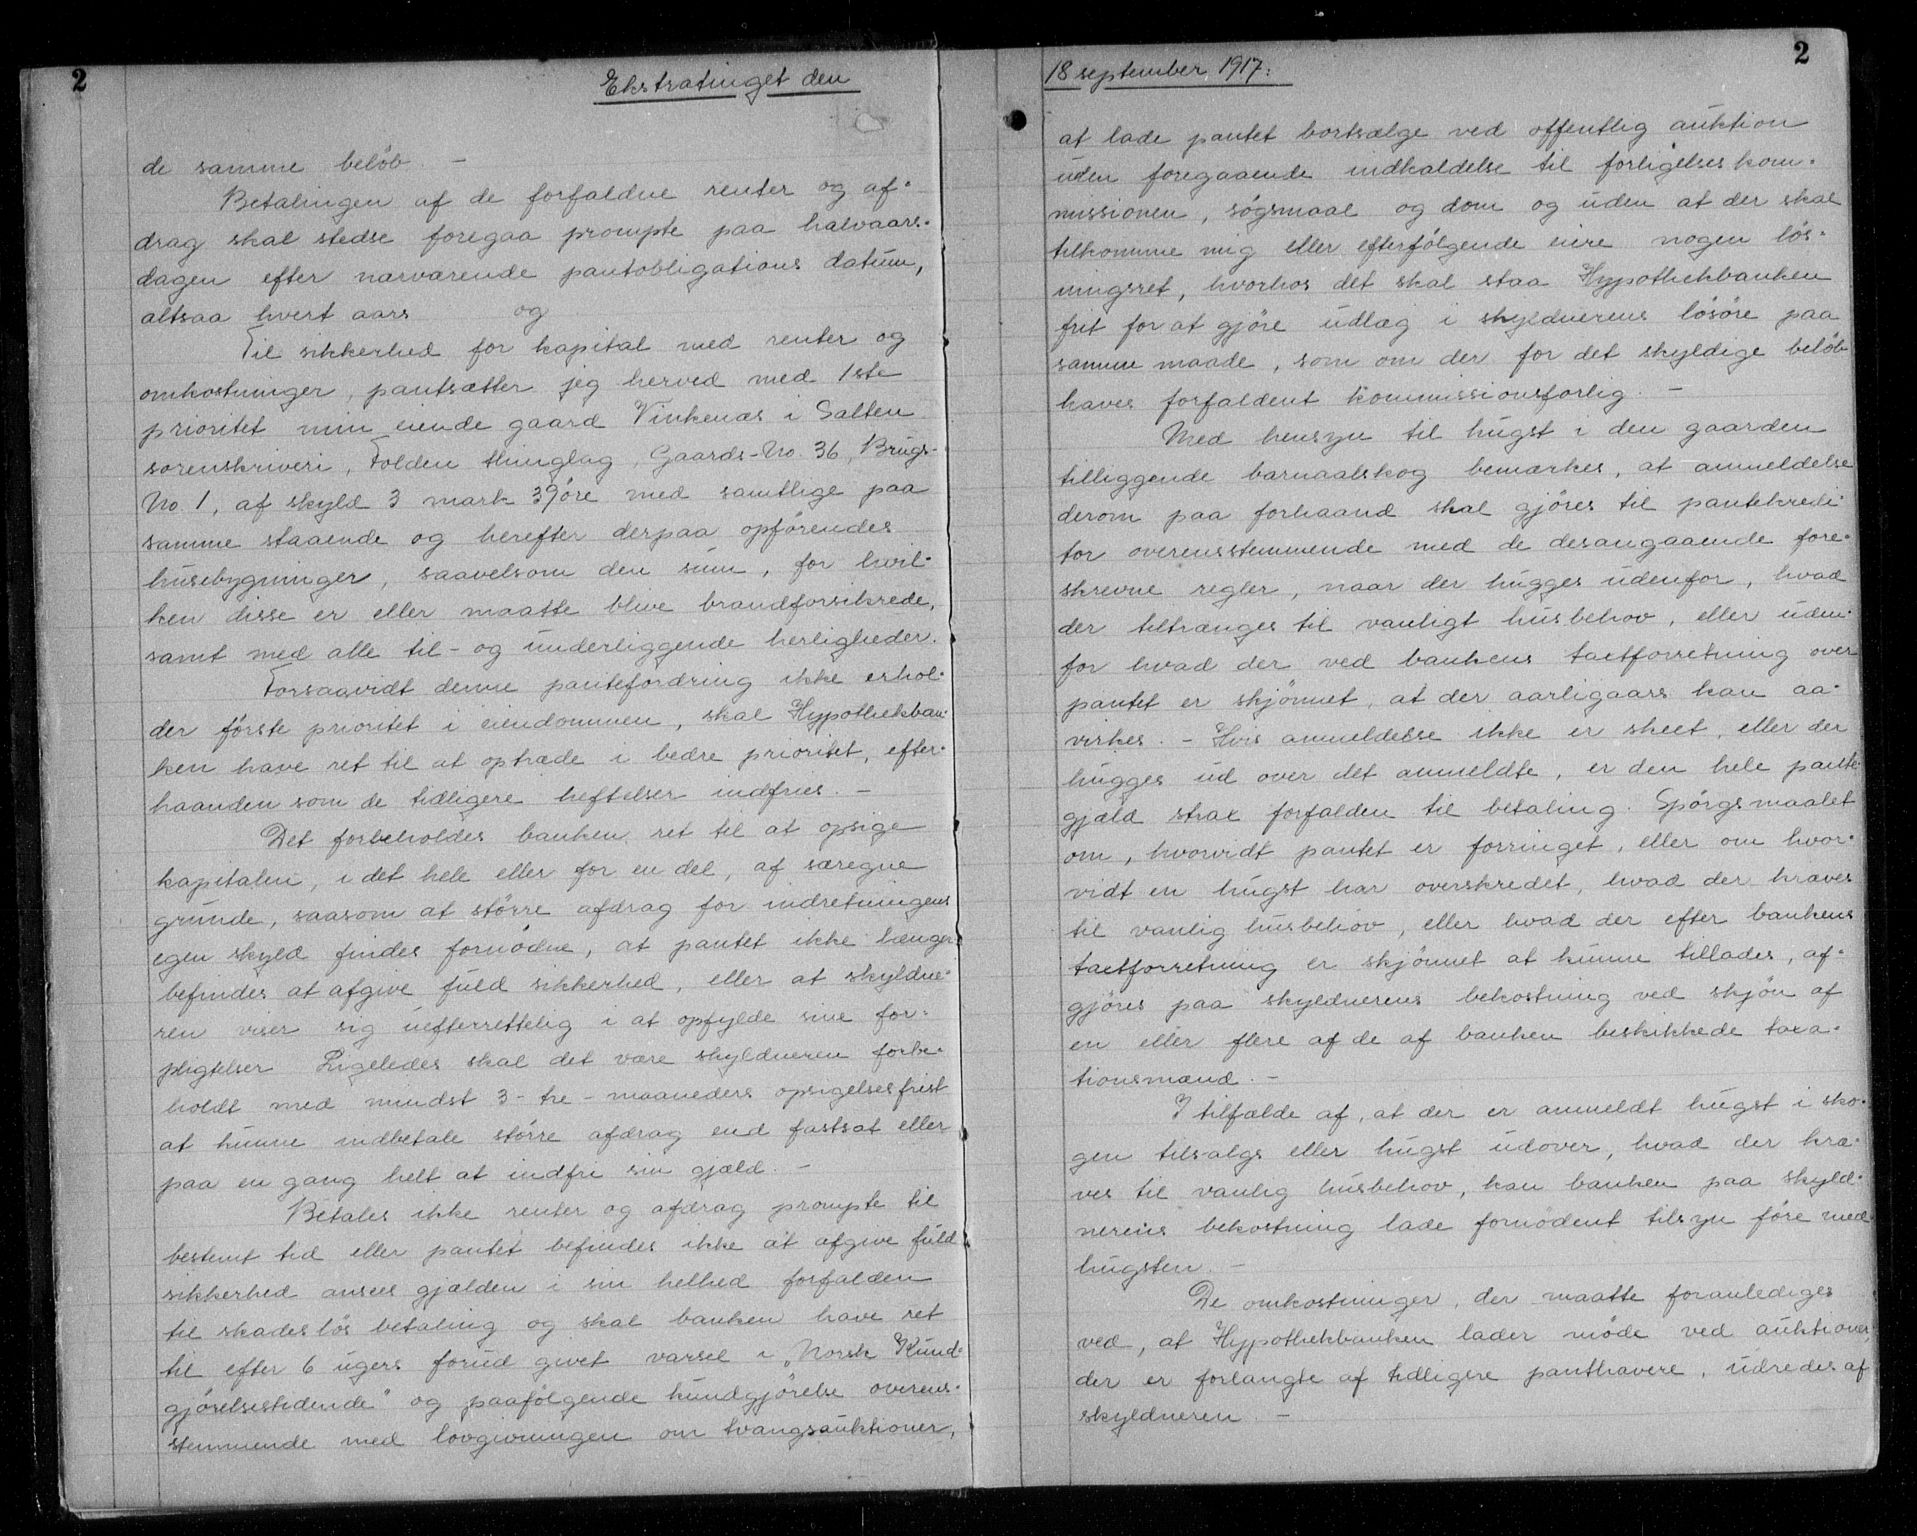 2
Ekstratinget den
de samme beløb. —
Betalingen af de forfaldne renter og af-
drag skal stedse foregaa prompte paa halvaars-
dagen efter nærværende pantobligations datum,
altsaa hvert aars og
Til sikkerhed for kapital med renter og
omkostninger, pantsætter jeg herved med 1ste
prioritet min eiende gaard Vinkenæs i Salten
sorenskriveri, Folden thinglag, Gaards-No. 36, Brugs-
No 1, af skyld 3 mark 39 øre med samtlige paa
samme staaende og herefter derpaa opførendes
husebygninger, saavelsom den sum, for hvil-
ken disse er eller maatte blive brandforsikrede,
samt med alle til- og underliggende herligheder.
Forsaavidt denne pantefordring ikke erhol-
der første prioritet i eiendommen, skal Hypothekban-
ken have ret til at optræde i bedre prioritet, efter-
haanden som de tidligere heftelser indfries. —
Det forbeholdes banken ret til at opsige
kapitalen, i det hele eller for en del, af særegne
grunde, saasom at større afdrag for indretningens
egen skyld findes fornødne, at pantet ikke længer
befindes at afgive fuld sikkerhed, eller at skyldne-
ren viser sig uefterrettelig i at opfylde sine for-
pligtelser Ligeledes skal det være skyldneren forbe-
holdt med mindst 3- tre - maaneders opsigelsesfrist
at kunne indbetale større afdrag end fastsat eller
paa en gang helt at indfri sin gjæld. —
Betales ikke renter og afdrag prompte til
bestemt tid eller pantet befindes ikke at afgive fuld
sikkerhed ansees gjælden i sin helhed forfalden
til skadesløs betaling og skal banken have ret
til efter 6 ugers forud givet varsel i „Norsk Kund-
gjørelsestidende" og paafølgende kundgjørelse overens-
stemmende med lovgivningen om tvangsauktioner,
18 september 1917:
2
at lade pantet bortsælge ved offentlig auktion
uden foregaaende indkaldelse til forligelseskom-
missionen, søgsmaal og dom og uden at der skal
tilkomme mig eller efterfølgende eiere nogen løs-
ningsret, hvorhos det skal staa Hypothekbanken
frit for at gjøre udlæg i skyldnerens løsøre paa
samme maade, som om der for det skyldige beløb
haves forfaldent kommissionsforlig. —
Med hensyn til hugst i den gaarden
tilliggende barnaalskog bemærkes, at anmeldelse
derom paa forhaand skal gjøres til pantekredi-
tor overensstemmende med de desangaaende fore-
skrevne regler, naar der hugges udenfor, hvad
der tiltrænges til vanligt husbehov, eller uden-
for hvad der ved bankens taxtforretning over
pantet er skjønnet, at der aarligaars kan aa-
virkes. — Hvis anmeldelse ikke er skeet, eller der
hugges ud over det anmeldte, er den hele pante-
gjæld strax forfalden til betaling. Spørgsmaalet
om, hvorvidt pantet er forringet, eller om hvor-
vidt en hugst har overskredet, hvad der kræves
til vanlig husbehov, eller hvad der efter bankens
taxtforretning er skjønnet at kunne tillades, af-
gjøres paa skyldnerens bekostning ved skjøn af
en eller flere af de af banken beskikkede taxa-
tionsmænd. —
I tilfælde af, at der er anmeldt hugst i sko-
gen tilsalgs eller hugst udover, hvad der kræ-
ves til vanlig husbehov, kan banken paa skyld-
nerens bekostning lade fornødent tilsyn føre med
hugsten. —
De omkostninger, der maatte foranlediges
ved, at Hypothekbanken lader møde ved auktioner,
der er forlangte af tidligere panthavere, udredes af
skyldneren. —